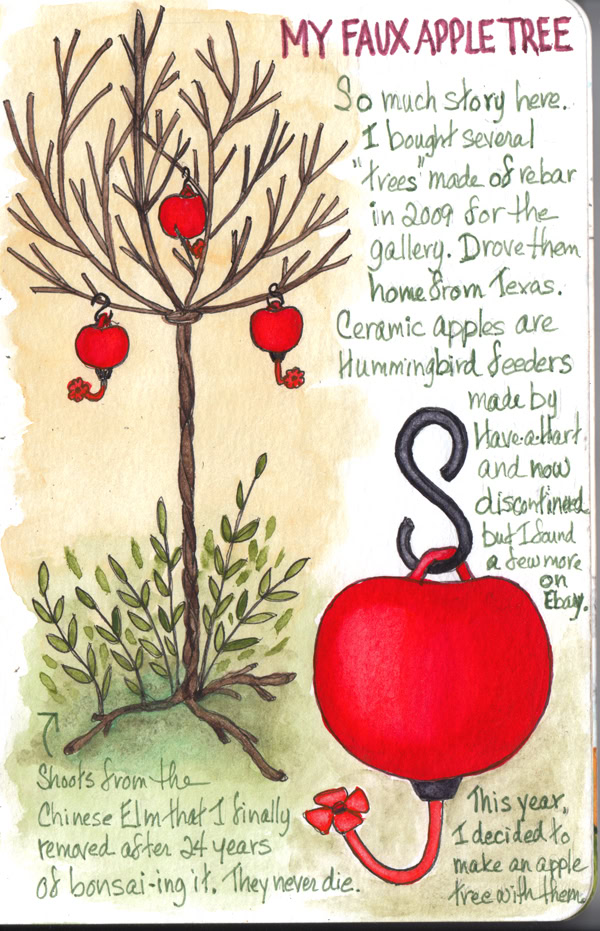 MY FAUX APPLE TREE
So much story here.
I bought several
"trees" made of rebar
in 2009 for the
gallery. Drove them
home from Texas.
Ceramic apples are
Hummingbird feeders
made by
Have-a-Hart
and now
discontinued
but I found
a few more
on
Ebay.
Shoots from the
Chinese Elm that I finally
removed after 24 years
of bonsai-ing it. They never die.
This year,
I decided to
make an apple
tree with them.